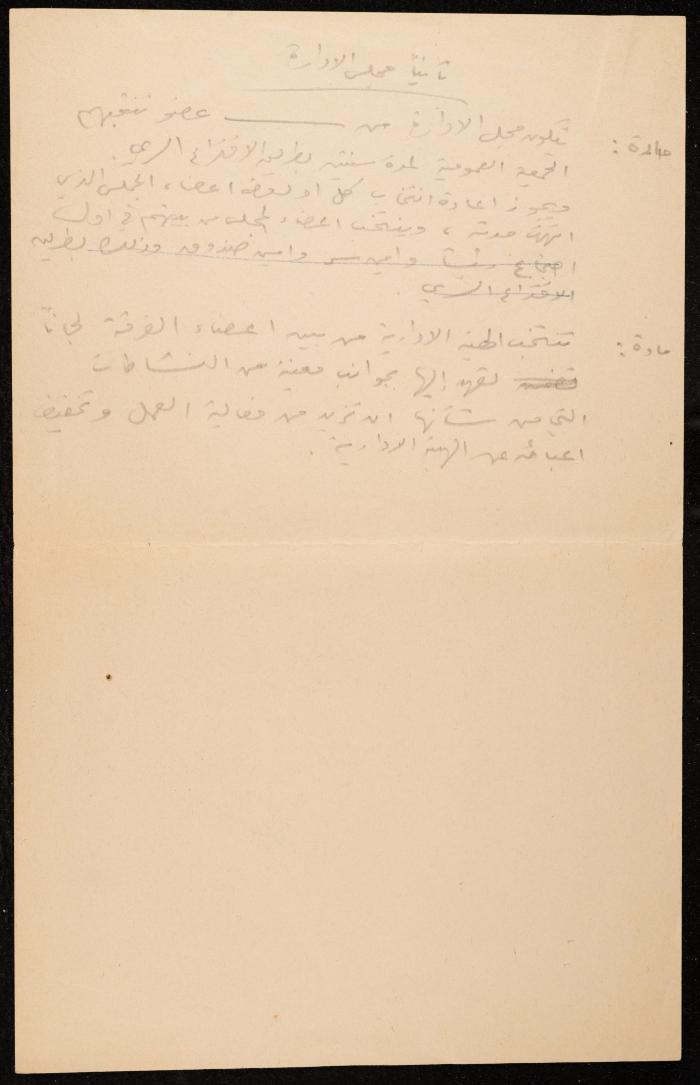 ثانياً مجلس الادارة
مادة : يتكون مجلس الادارة من ـــــــــ عضو تنتخبهم
الجمعية العمومية لمدة سنتين بطريق الاقتراع السري .
ويجوز اعادة انتخاب كل او بعض اعضاء المجلس الذي
انتهت مدته ، وينتخب اعضاء المجلس من بينهم في اول
اجتماع رئيساً وامين سر وامين صندوق وذلك بطريق
الاقتراع السري .
مادة : تنتخب الهيئة الادارية من بين اعضاء الفرقة لجاناً
تعهد إليها بجوانب معينة من النشاطات
التي من شأنها ان تزيد من فعالية العمل وتخفيف
اعبائه عن الهيئة الادارية .